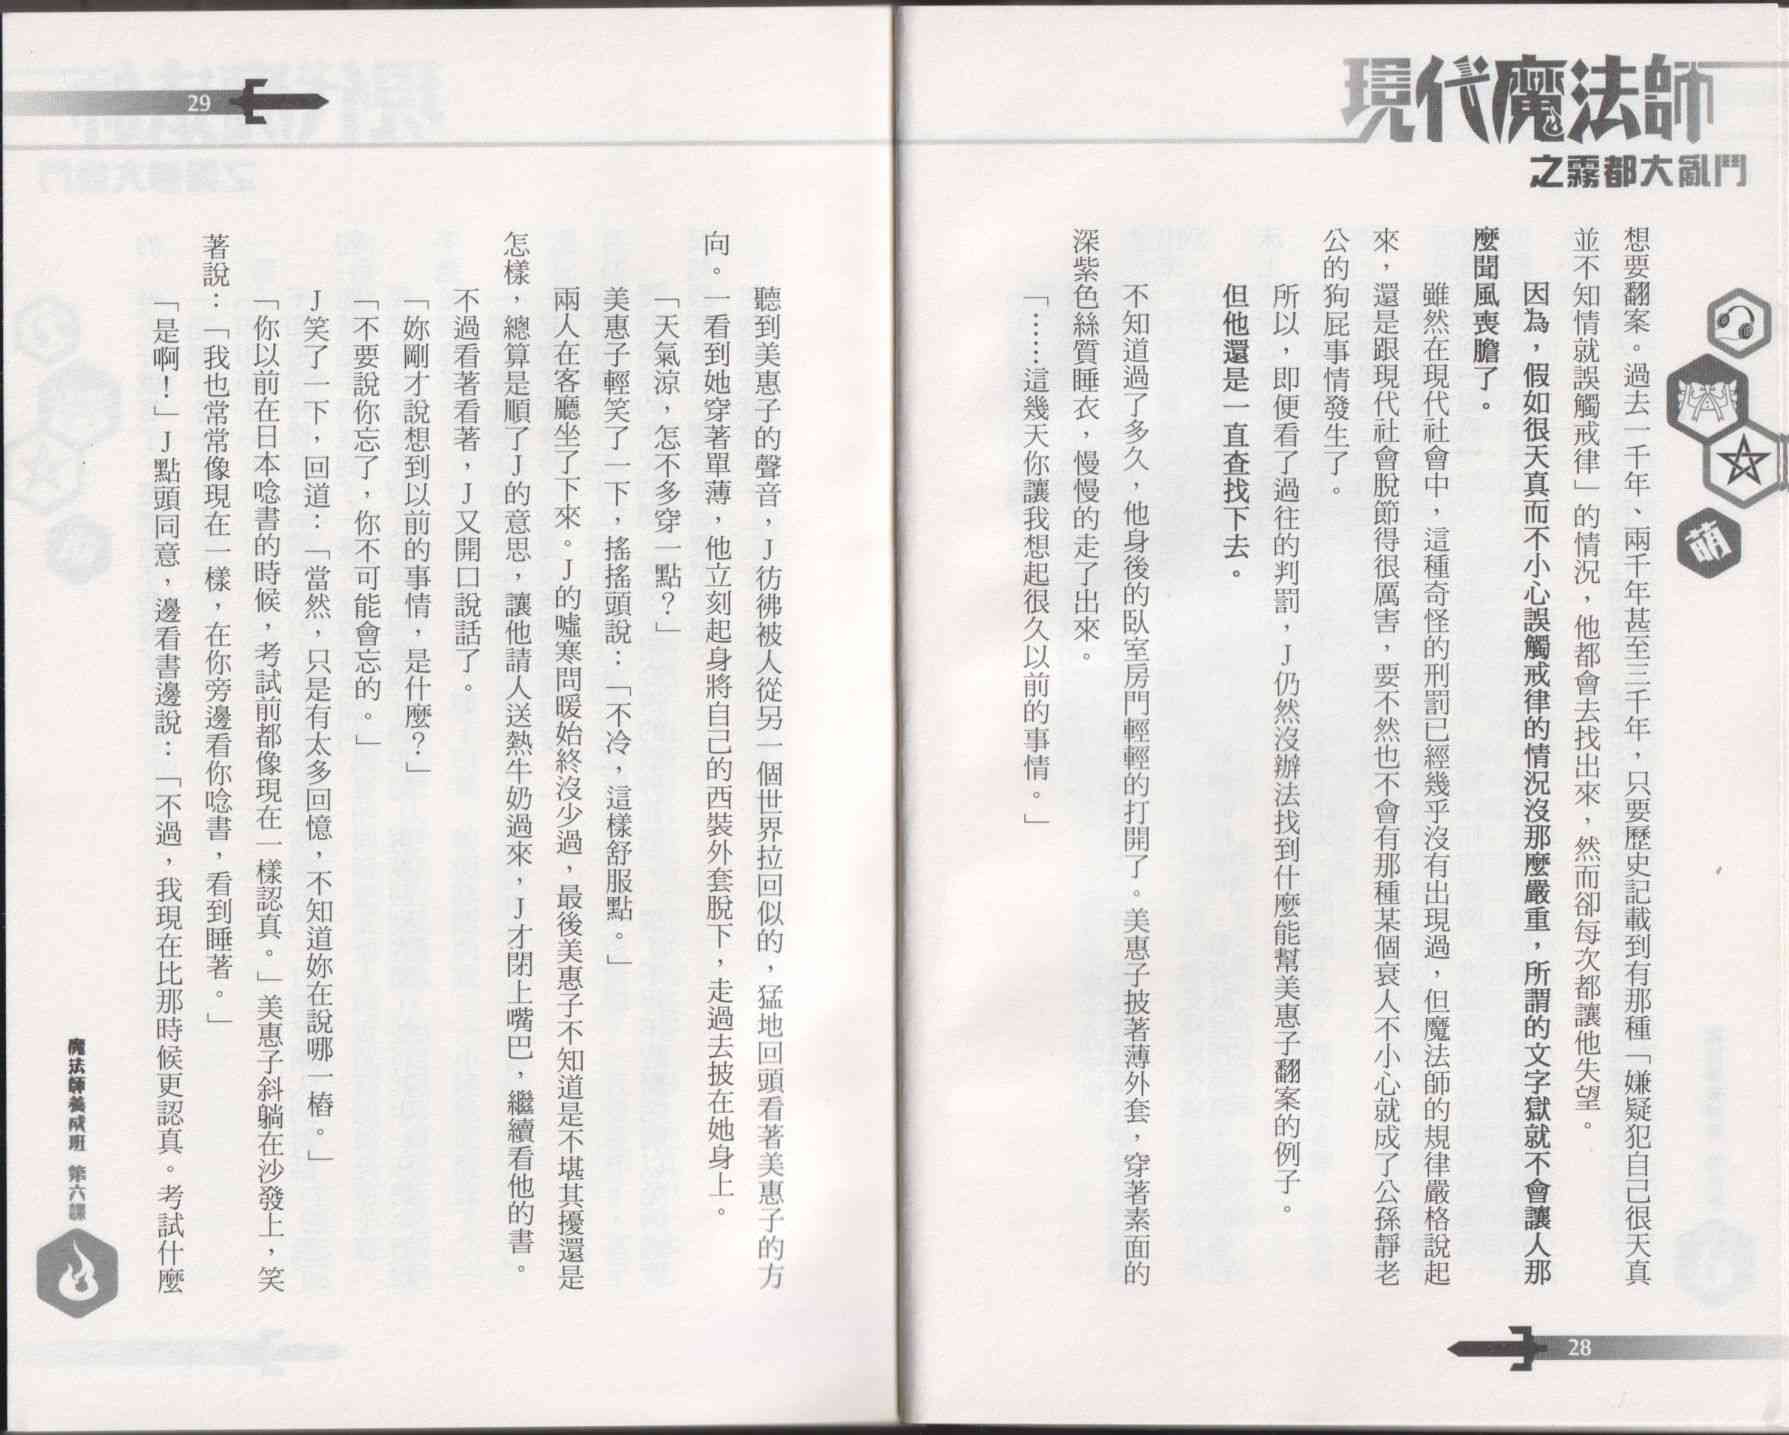 現代魔法師
之霧都大亂鬥
想要翻案。過去一千年、兩千年甚至三千年，只要歷史記載到有那種「嫌疑犯自己很天真
並不知情就誤觸戒律」的情況，他都會去找出來，然而卻每次都讓他失望。
因為，假如很天真而不小心誤觸戒律的情況沒那麼嚴重，所謂的文字獄就不會讓人那
麼聞風喪膽了。
雖然在現代社會中，這種奇怪的刑罰已經幾乎沒有出現過，但魔法師的規律嚴格說起
來，還是跟現代社會脫節得很厲害，要不然也不會有那種某個衰人不小心就成了公孫靜老
公的狗屁事情發生了。
所以，即便看了過往的判罰，J仍然沒辦法找到什麼能幫美惠子翻案的例子。
但他還是一直查找下去。
不知道過了多久，他身後的臥室房門輕輕的打開了。美惠子披著薄外套，穿著素面的
深紫色絲質睡衣，慢慢的走了出來。
「……這幾天你讓我想起很久以前的事情。」
萌
28
29
聽到美惠子的聲音，J彷彿被人從另一個世界拉回似的，猛地回頭看著美惠子的方
向。一看到她穿著單薄，他立刻起身將自己的西裝外套脫下，走過去披在她身上。
「天氣涼，怎不多穿一點？」
美惠子輕笑了一下，搖搖頭說：「不冷，這樣舒服點。」
兩人在客廳坐了下來。J的噓寒問暖始終沒少過，最後美惠子不知道是不堪其擾還是
怎樣，總算是順了J的意思，讓他請人送熱牛奶過來，J才閉上嘴巴，繼續看他的書。
不過看著看著，J又開口說話了。
「妳剛才說想到以前的事情，是什麼？」
「不要說你忘了，你不可能會忘的。」
J笑了一下，回道：「當然，只是有太多回憶，不知道妳在說哪一樁。」
「你以前在日本唸書的時候，考試前都像現在一樣認真。」美惠子斜躺在沙發上，笑
著說：「我也常常像現在一樣，在你旁邊看你唸書，看到睡著。」
「是啊！」J點頭同意，邊看書邊說：「不過，我現在比那時候更認真。考試什麼
魔法師養成班 第六課